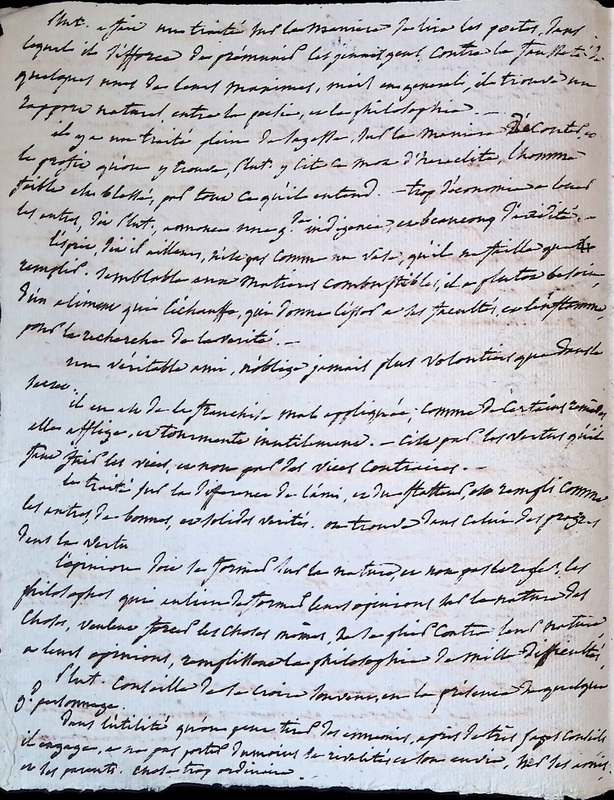 Plut. a fait un traité sur la maniere de lire les poetes, dans
lequel il s'efforce de prémunir les jeunes gens contre la fausseté de
quelques unes de leurs maximes, mais en general, il trouve un
rapport naturel entre la poesie, et la philosophie. —
il y a un traité plein de sagesse, sur la maniere d'ecouter,
le profit qu'on y trouve, Plut. y cite ce mot d'heraclite, l'homme
faible est blessé, par tout ce qu'il entend. — trop d'économie a louer
les autres, dit Plut., annonce une gde indigence, et beaucoup d'avidité. —
l'esprit, dit il ailleurs, n'est pas comme un vase, qu'il ne faille que
remplir. semblable aux matieres combustibles, il a plutot besoin,
d'un aliment qui l'échauffe, qui donne l'essor a ses facultés, et l'enflamme
pour la recherche de la verité. —
un véritable ami, n'oblige jamais plus volontiers que dans le
secret.
il en est de la franchise mal appliquée, comme de certains remedes
elle afflige, et tourmente inutilement. — c'est par les vertus qu'il
faut fuir les vices, et non par des vices contraires. —
le traité sur la difference de l'ami, et du flatteur est rempli comme
les autres de bonnes, et solides verités. on trouve dans celui des progrès
dans la vertu
l'opinion doit se former sur la nature, et non pas la regler. les
philosophes qui au lieu de former leurs opinions sur la nature des
choses, veulent forcer les choses mêmes, de se plier contre leur nature
a leurs opinions, remplissent la philosophie de mille difficultés
Plut. conseille de se croire souvent, en la présence de quelque
gd personnage.
Dans l'utilité qu'on peut tirer des ennemis, après de très sages conseils
il engage, a ne pas porter de rivalités et son envie, sur ses amis,
et ses parents. c'est trop ordinaire.